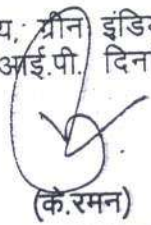 य, ग्रीन इंडि
आई.पी. दिन
(के.रमन)